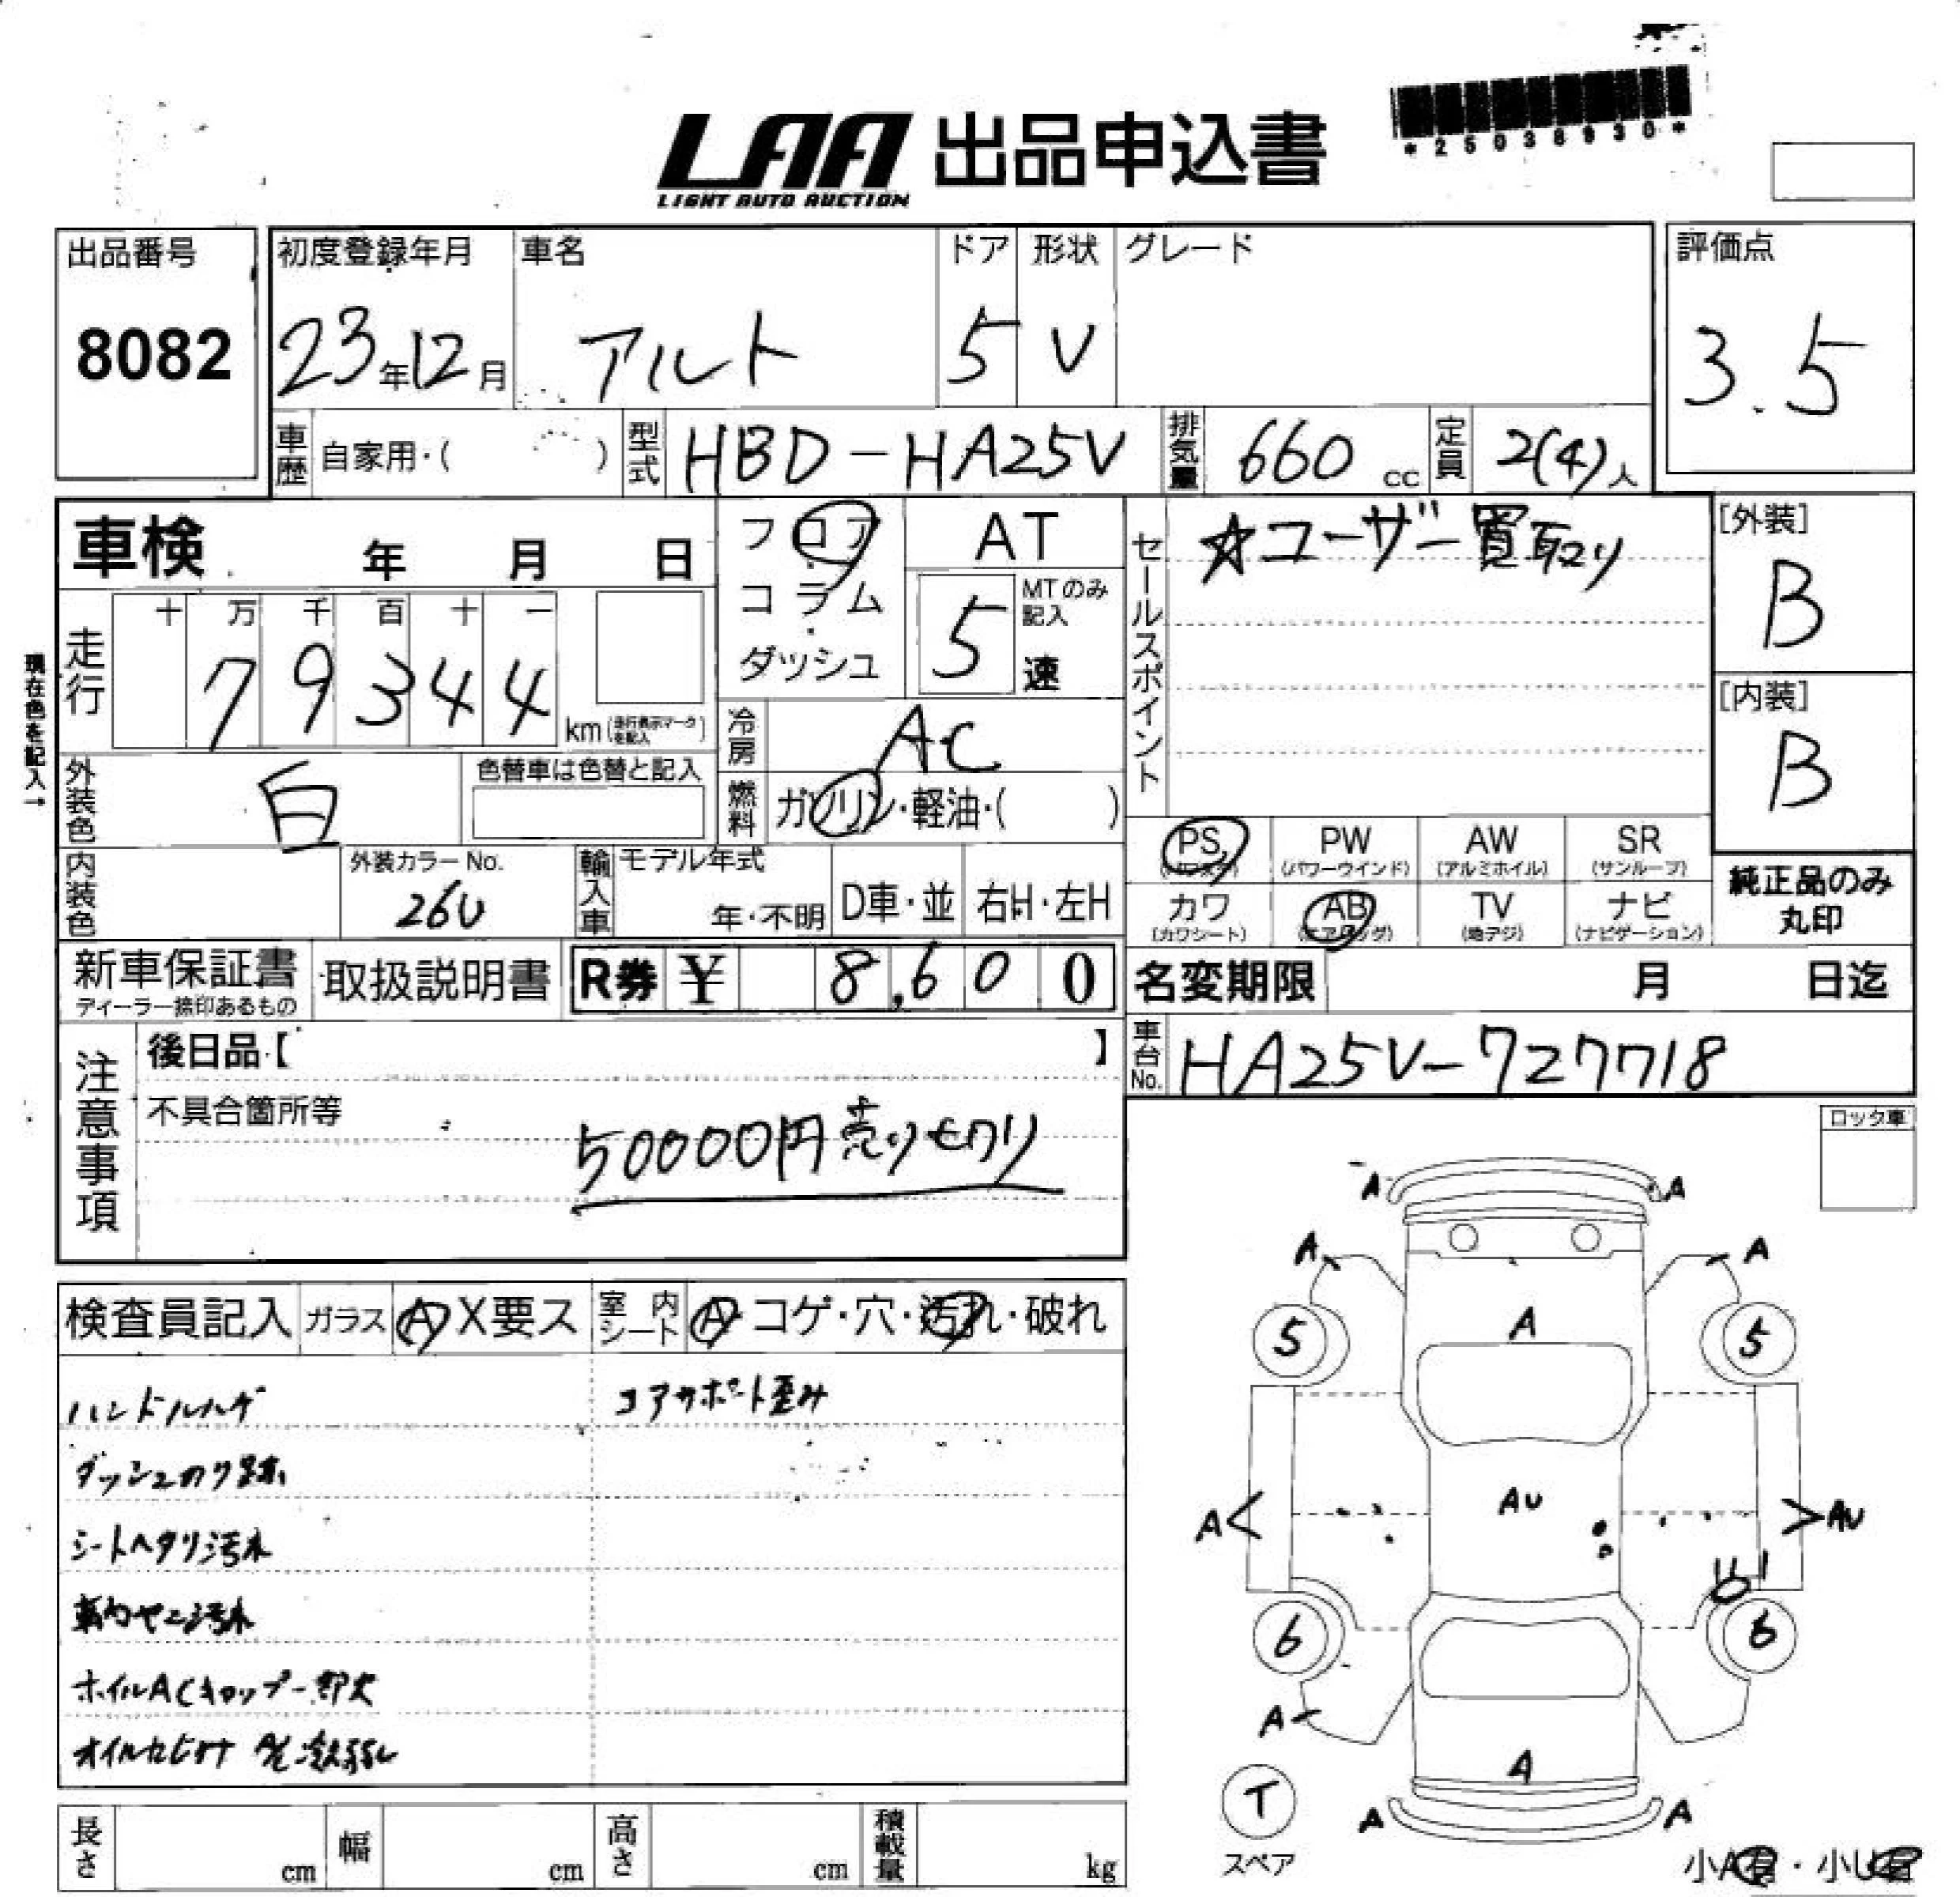 LAA 出品申込書
LIGHT AUTO AUCTION
*25038930*
出品番号
8082
初度登録年月
23年12月
車名
アルト
ドア
5
形状
V
グレード
評価点
3.5
車歴 自家用・( )
型式 HBD-HA25V
排気量 660 cc
定員 2(4)人
車検 年 月 日
フロア・コラム・ダッシュ
AT
MTのみ記入
5 速
セールスポイント
☆ユーザー買取り
[外装]
B
[内装]
B
現在色を記入→
走行
十 万 千 百 十 一
7 9 3 4 4 km(走行表示マークを記入)
冷房 AC
燃料 ガソリン・軽油・( )
外装色 白
色替車は色替と記入
内装色
外装カラーNo.
26U
輸入車
モデル年式
年・不明
D車・並
右H・左H
PS (パワステ)
PW (パワーウインド)
AW (アルミホイル)
SR (サンルーフ)
カワ (カワシート)
AB (エアバッグ)
TV (地デジ)
ナビ (ナビゲーション)
純正品のみ
丸印
新車保証書
ディーラー捺印あるもの
取扱説明書
R券 ¥ 8,600
名変期限 月 日迄
車台No. HA25V-727718
注意事項
後日品【 】
不具合箇所等
50000円売り切り
ロック車
検査員記入
ガラス A X要ス
室内シート A・コゲ・穴・汚れ・破れ
ハンドルハゲ
コアサポート歪み
ダッシュのり跡
シートヘタリ汚れ
車内ヤニ汚れ
ホイルACキャップ一部欠
オイルカヒカケ
A A
A A
5 A 5
A< AU >AU
6 6
A
A
A A
T
スペア
小A有・小U有
長さ cm
幅 cm
高さ cm
積載量 kg